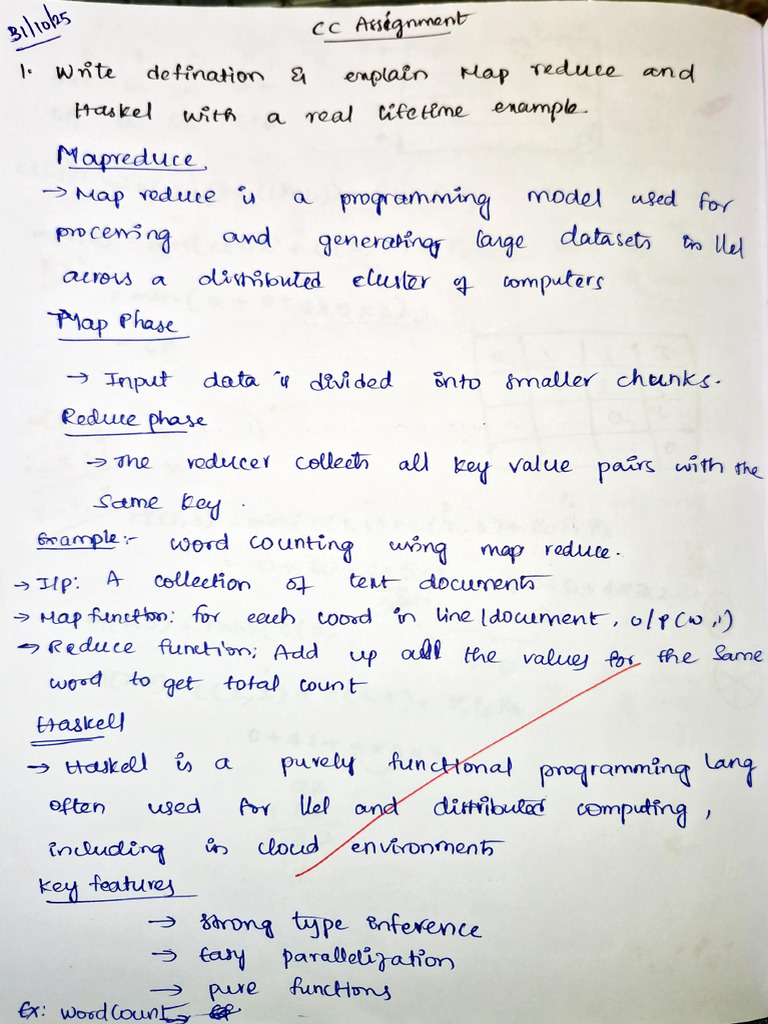 31/10/25
CC Assignment
1. Write defination & explain Map reduce and
Haskel with a real lifetime example.
Mapreduce
→ Map reduce is a programming model used for
processing and generating large datasets in llel
across a distributed cluster of computers
Map Phase
→ Input data is divided into smaller chunks.
Reduce phase
→ The reducer collects all key value pairs with the
same key.
Example:- word counting using map reduce.
→ I/p: A collection of text documents
→ Map function: for each word in line/document, o/p (w,1)
→ Reduce function; Add up all the values for the same
word to get total count
Haskell
→ Haskell is a purely functional programming lang
often used for llel and distributed computing,
including in cloud environments
Key features
→ strong type inference
→ Easy parallelization
→ pure functions
Ex: wordcount→